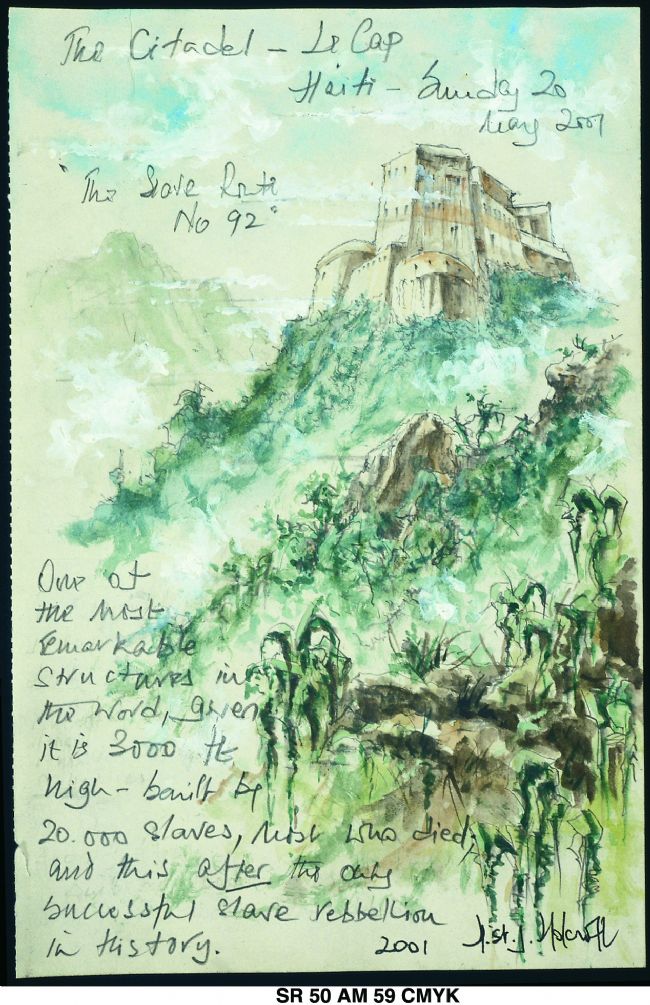 The Citadel – Le Cap
Haiti – Sunday 20
May 2001
"The Slave Route
No 92"
One of
the most
remarkable
structures in
the word, given
it is 3000 ft
high – built by
20.000 slaves, most who died;
and this after the only
successful slave rebbellion
in history.
2001
SR 50 AM 59 CMYK